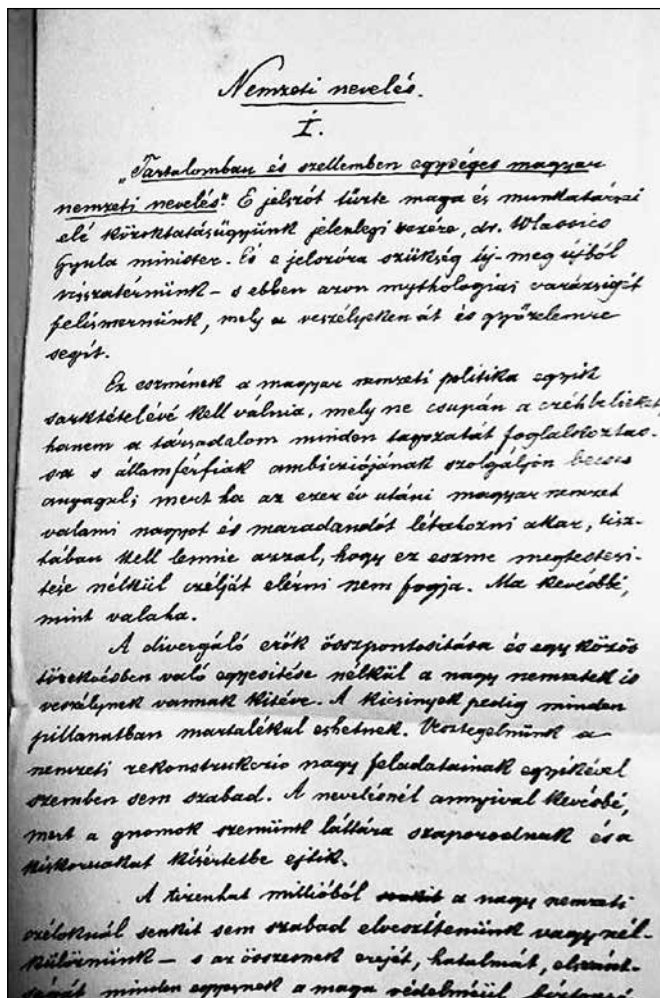 Nemzeti nevelés.
I.
„Tartalomban és szellemben egységes magyar
nemzeti nevelés". E jelszót tűzte maga és munkatársai
elé közoktatásügyünk jelenlegi vezére, dr. Wlassics
Gyula minister. És e jelszóra szükség új-meg újból
visszatérnünk – s ebben azon mythologiai varázsigét
felismernünk, mely a veszélyeken át és győzelemre
segít.
Ez eszmének a magyar nemzeti politika egyik
sarktételévé kell válnia, mely ne csupán a czéhbelieket,
hanem a társadalom minden tagozatát foglalkoztas-
sa s államférfiak ambicziójának szolgáljon becses
anyagul; mert ha az ezer év utáni magyar nemzet
valami nagyot és maradandót létrehozni akar, tisz-
tában kell lennie azzal, hogy ez eszme megtestesi-
tése nélkül czélját elérni nem fogja. Ma kevésbbé,
mint valaha.
A divergáló erők összpontositása és egy közös
törekvésben való egyesitése nélkül a nagy nemzetek is
veszélynek vannak kitéve. A kicsinyek pedig minden
pillanatban martalékul eshetnek. Vesztegelnünk a
nemzeti rekonstrukczio nagy feladatainak egyikével
szemben sem szabad. A nevelésnél annyival kevésbé,
mert a gnomok szemünk láttára szaporodnak és a
kiskoruakat kisértetbe ejtik.
A tizenhat millióból senkit a nagy nemzeti
czéloknál senkit sem szabad elveszítenünk vagy nél-
külöznünk – s az összesnek erejét, hatalmát, elszánt-
ságát minden egyesnek a maga védelméül